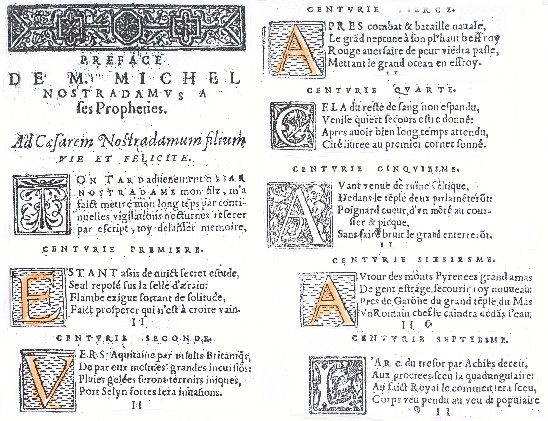 PREFACE
DE M. MICHEL
NOSTRADAMVS A
ses Propheties.
Ad Cæsarem Nostradamum filium
VIE ET FELICITE.
TON TARD aduenement CESAR
NOSTRADAME mon filz, m'a
faict mettre mon long têps par conti-
nuelles vigilations nocturnes reserer
par escript, toy delaisser memoire,
CENTVRIE PREMIERE.
ESTANT assis de nuict secret estude,
Seul reposé sus la selle d'ærain:
Flambe exigue sortant de solitude,
Faict prosperer qui n'est à croire vain.
II
CENTVRIE SECONDE.
VERS Aquitaine par insults Britaniqs,
De par eux mesmes grandes incursiõs:
Pluies gelées feront terroirs iniques,
Port Selyn fortes fera inuasions.
II
CENTVRIE TIERCE.
APRES combat & bataille nauale,
Le grãd neptune à son plꝰ haut beffroy
Rouge auersaire de peur viẽdra pasle,
Mettant le grand ocean en effroy.
CENTVRIE QVARTE.
CELA du reste de sang non espandu,
Venise quiert secours estre donné:
Apres auoir bien long temps attendu,
Cité liuree au premier cornet sonné.
CENTVRIE CINQVIESME.
AVant venue de ruine Celtique,
Dedans le tẽple deux parlamẽterõt:
Poignard cueur, d'vn mõté au cour-
sier & picque,
Sans faire bruit le grand enterrerõt.
II
CENTVRIE SIXIESME.
AVtour des monts Pyrenees grand amas
De gent estrãge, secourir roy nouueau:
Pres de Garõne du grand tẽple du Mas
Vn Romain chef le caindra dedãs l'eau.
II
CENTVRIE SEPTIESME.
L'ARC du tresor par Achiles deceu,
Aux procrees sceu la quadrangulaire:
Au faict Royal le comment sera sceu,
Corps veu pendu au veu du populaire
II